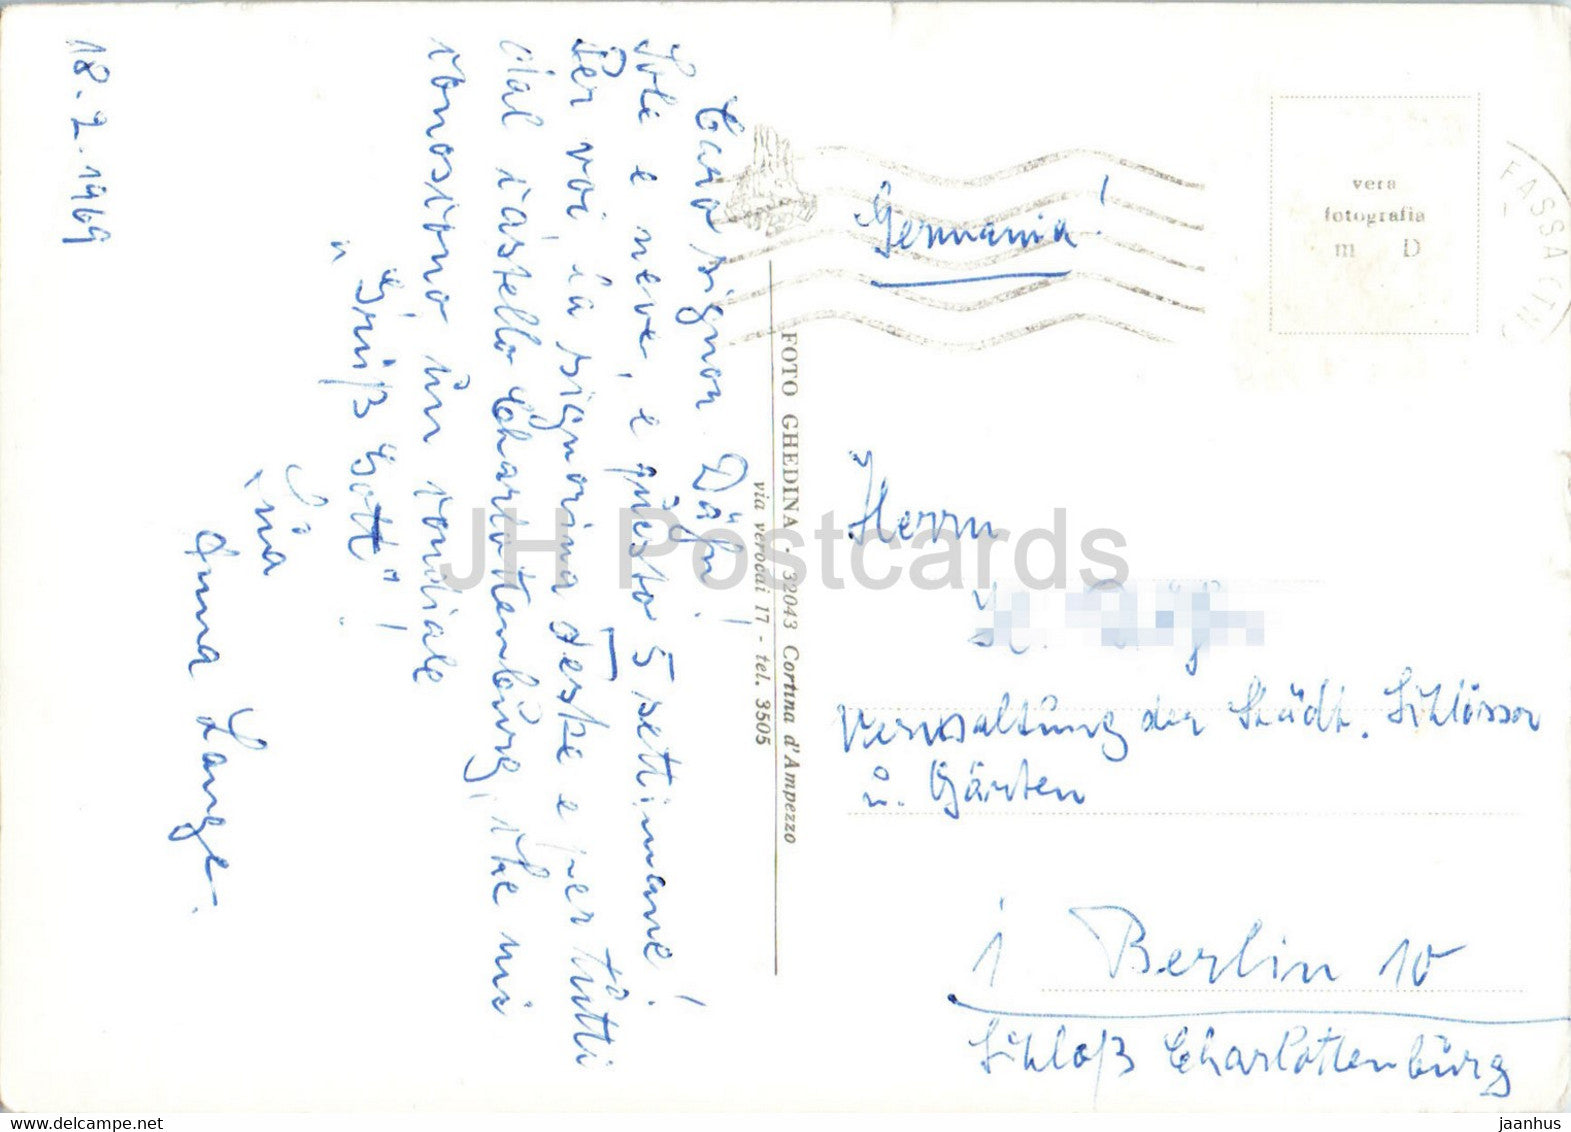 18.2.1969
Caro signor Dähn!
Sole e neve, e questo 5 settimane!
Per voi, la signorina Jeske e per tutti
dal castello Charlottenburg, che mi
conoscono, un cordiale
"Grüß Gott"!
Sua
Anna Lange.
FOTO GHEDINA · 32043 Cortina d'Ampezzo
via verocai 17 - tel. 3505
Germania!
vera
fotografia
m D
FASSA (TN)
Herrn
Verwaltung der Städt. Schlösser
u. Gärten
1 Berlin 10
Schloß Charlottenburg
JH Postcards
delcampe.net
jaanhus